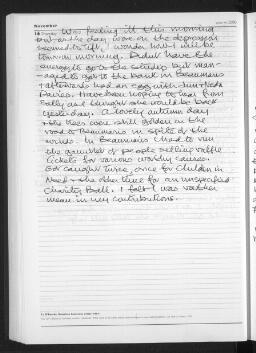 November
Was feeling it this morning
but as the day wore on the depression
seemed to lift. I wonder how I will be
tomorrow morning. Didn't have the
energy to go to the studio but man-
aged to get to the bank in Beaumaris
& afterwards had an egg with
Davies. Have been hoping to hear from
Sally as I thought she would be back
yesterday. A lovely autumn day
& the trees were still golden on the
road to Beaumaris in spite of the
winds. In Beaumaris I had to run
the gauntlet of people selling raffle
tickets for various worthy causes.
Got caught twice, once for Children in
Need & the other time for an unspecified
Charity Ball. I felt I was rather
mean in my contributions.